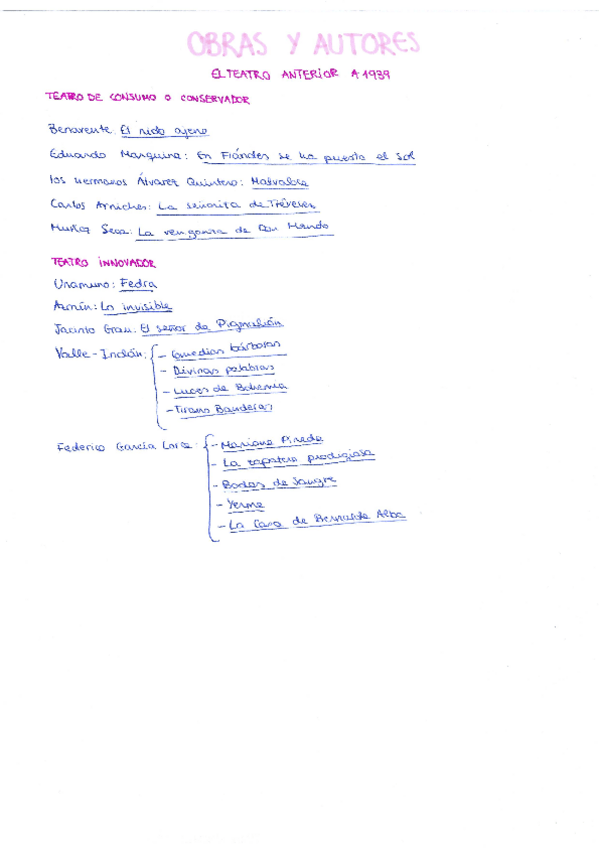 OBRAS Y AUTORES
EL TEATRO ANTERIOR A 1939
TEATRO DE CONSUMO O CONSERVADOR
Benavente: El nido ajeno
Eduardo Marquina: En Flandes se ha puesto el sol
Los hermanos Álvarez Quintero: Malvaloca
Carlos Arniches: La señorita de Trévelez
Muñoz Seca: La venganza de Don Mendo
TEATRO INNOVADOR
Unamuno: Fedra
Azorín: Lo invisible
Jacinto Grau: El señor de Pigmalión
Valle-Inclán: - Comedias bárbaras
- Divinas palabras
- Luces de Bohemia
- Tirano Banderas
Federico García Lorca: - Mariana Pineda
- La zapatera prodigiosa
- Bodas de Sangre
- Yerma
- La Casa de Bernarda Alba